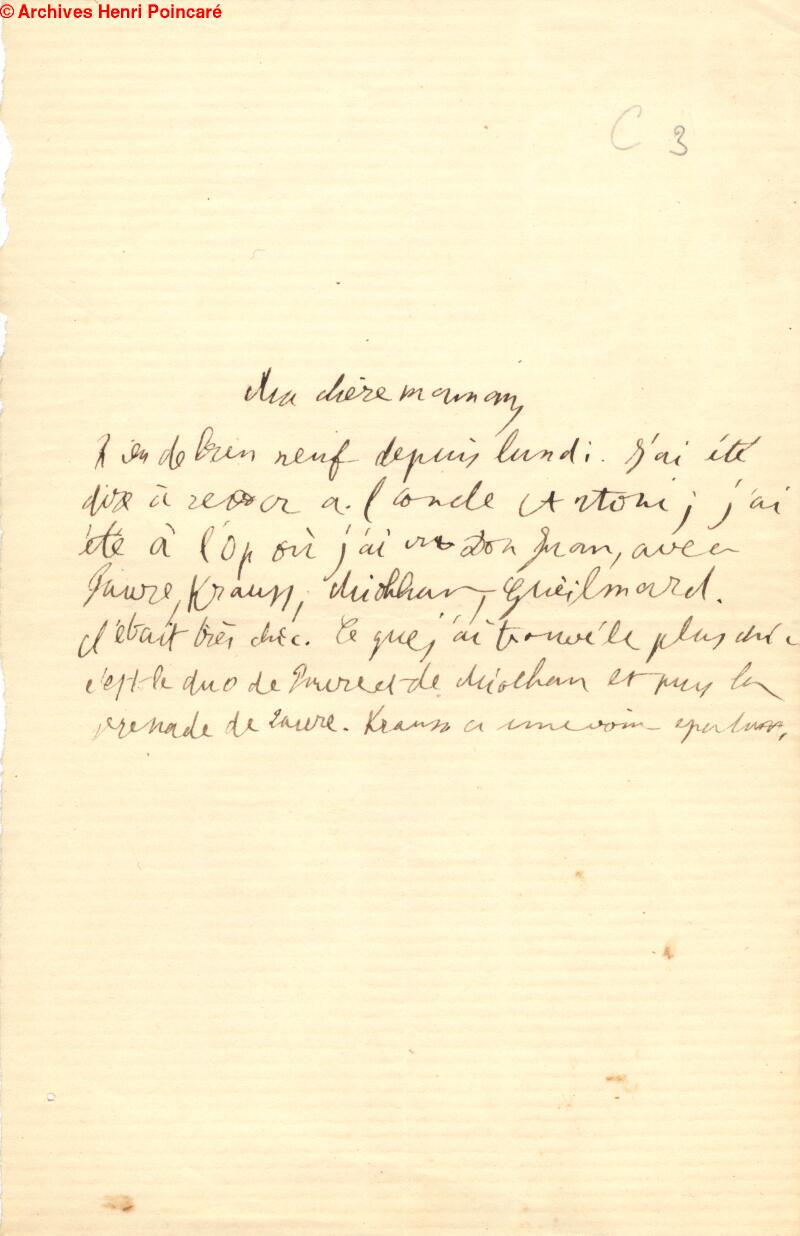 © Archives Henri Poincaré
C 3
Ma chère maman,
Rien de bien neuf depuis lundi. J'ai été
dire à revoir a l'oncle Antoni; j'ai
été à l'Op où j'ai vu Don Juan, avec
Faure, Krauss, Miolhan, Gueilmard.
C'était très chic. Ce que j'ai trouvé le plus chic
c'est le duo de Faure et de Miolhan et puis la
serenade de Faure. Krauss a une voix